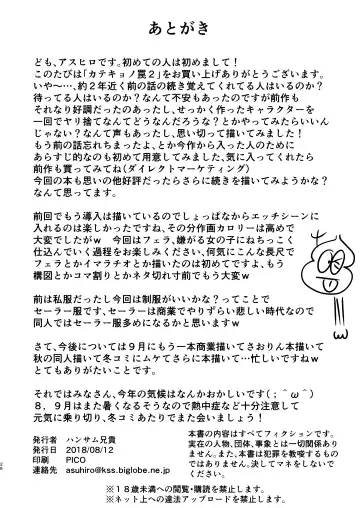 あとがき
ども、アスヒロです。初めての人は初めまして！
このたびは「カテキョノ罠２」をお買い上げありがとうございます。
いや〜…、約２年近く前の話の続き覚えてくれてる人はいるのか？
待ってる人はいるのか？なんて不安もあったのですが前作も
それなり好評だったのあったし、せっかく作ったキャラクターを
一回でヤリ捨てなんてどうなんだろうな？とかやってみたらいいん
じゃない？なんて声もあったし、思い切って描いてみました！
もう前の話忘れちまったよ、とか今作から入った人のために
あらすじ的なのも初めて用意してみました、気に入ってくれたら
前作も買ってみてね(ダイレクトマーケティング)
今回の本も思いの他好評だったらさらに続きを描いてみようかな？
なんて思ってます。
前回でもう導入は描いているのでしょっぱなからエッチシーンに
入れるのは楽しかったですね、その分作画カロリーは高めで
大変でしたがｗ　今回はフェラ、嫌がる女の子にねちっこく
仕込んでいく過程をお楽しみください、何気にこんな長尺で
フェラとかイマラチオとか描いたのは初めてですよ、もう
構図とかコマ割りとかネタ切れ寸前でもう大変ｗ
前は私服だったし今回は制服がいいかな？ってことで
セーラー服です、セーラーは商業でやりずらい悲しい時代なので
同人ではセーラー服多めになるかと思いますｗ
さて、今後については９月にもう一本商業描いてさおりん本描いて
秋の同人描いて冬コミにムケてさらに本描いて…忙しいですねｗ
とてもありがたいことです。
それではみなさん、今年の気候はなんかおかしいです(；＾ω＾)
８，９月はまだ暑くなるそうなので熱中症など十分注意して
元気に乗り切り、冬コミあたりでまた会いましょう！
発行者　ハンサム兄貴
発行日　2018/08/12
印刷　PICO
連絡先　asuhiro@kss.biglobe.ne.jp
本書の内容はすべてフィクションです。
実在の人物、団体、事象とは一切関係あり
ません。また、本書は犯罪を教唆するもの
ではありません。決してマネをしないで
ください。
※１８歳未満への閲覧・購読を禁止します。
※ネット上への違法アップロードを禁止します。